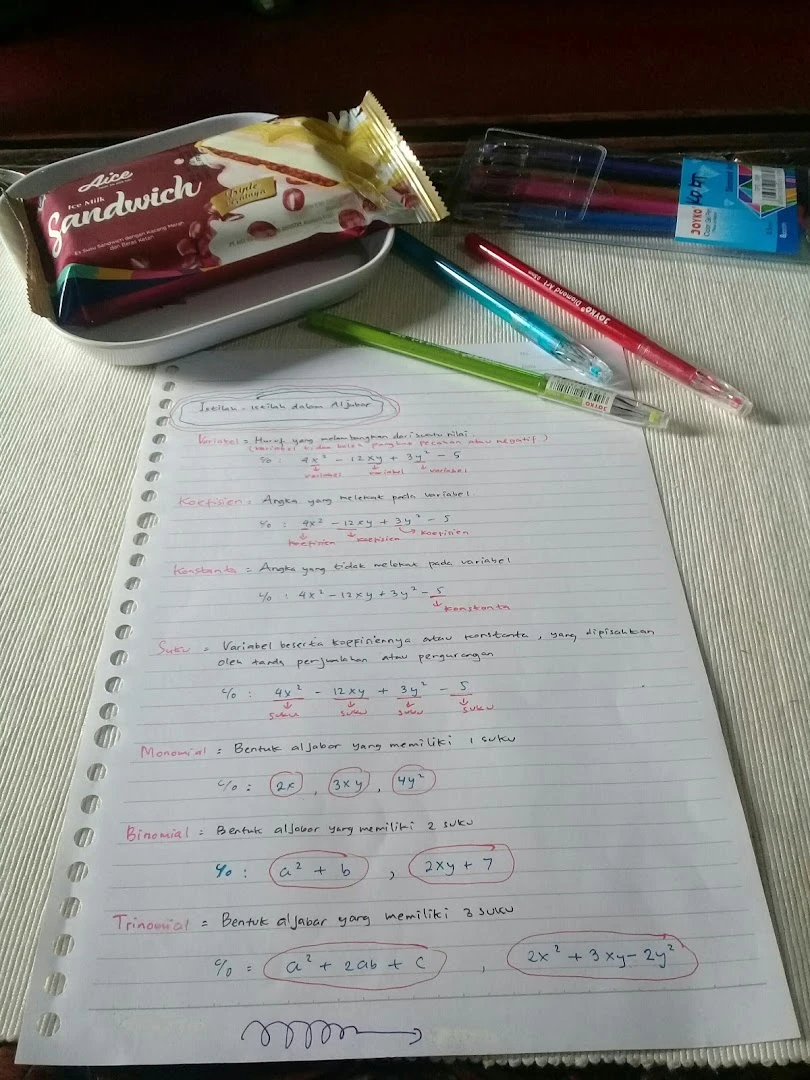 Aice
Ice Milk
Sandwich
Triple
Es Susu Sandwich dengan Kacang Merah
dan Beras Ketan
JOYKO
JOYKO Diamond Art
JOYKO
Istilah - Istilah dalam Aljabar
Variabel = Huruf yang melambangkan dari suatu nilai.
(Variabel tidak boleh pangkat pecahan atau negatif)
c/o : 4x² - 12xy + 3y² - 5
↓ variabel ↓ variabel ↓ variabel
Koefisien = Angka yang melekat pada variabel
c/o : 4x² - 12xy + 3y² - 5
↓ koefisien ↓ koefisien → koefisien
Konstanta = Angka yang tidak melekat pada variabel
c/o : 4x² - 12xy + 3y² - 5
↓ konstanta
Suku = Variabel beserta koefisiennya atau konstanta, yang dipisahkan
oleh tanda penjumlahan atau pengurangan
c/o : 4x² - 12xy + 3y² - 5
↓ suku ↓ suku ↓ suku ↓ suku
Monomial = Bentuk aljabar yang memiliki 1 suku
c/o = 2x , 3xy , 4y²
Binomial = Bentuk aljabar yang memiliki 2 suku
c/o : a² + b , 2xy + 7
Trinomial = Bentuk aljabar yang memiliki 3 suku
c/o = a² + 2ab + c , 2x² + 3xy - 2y²